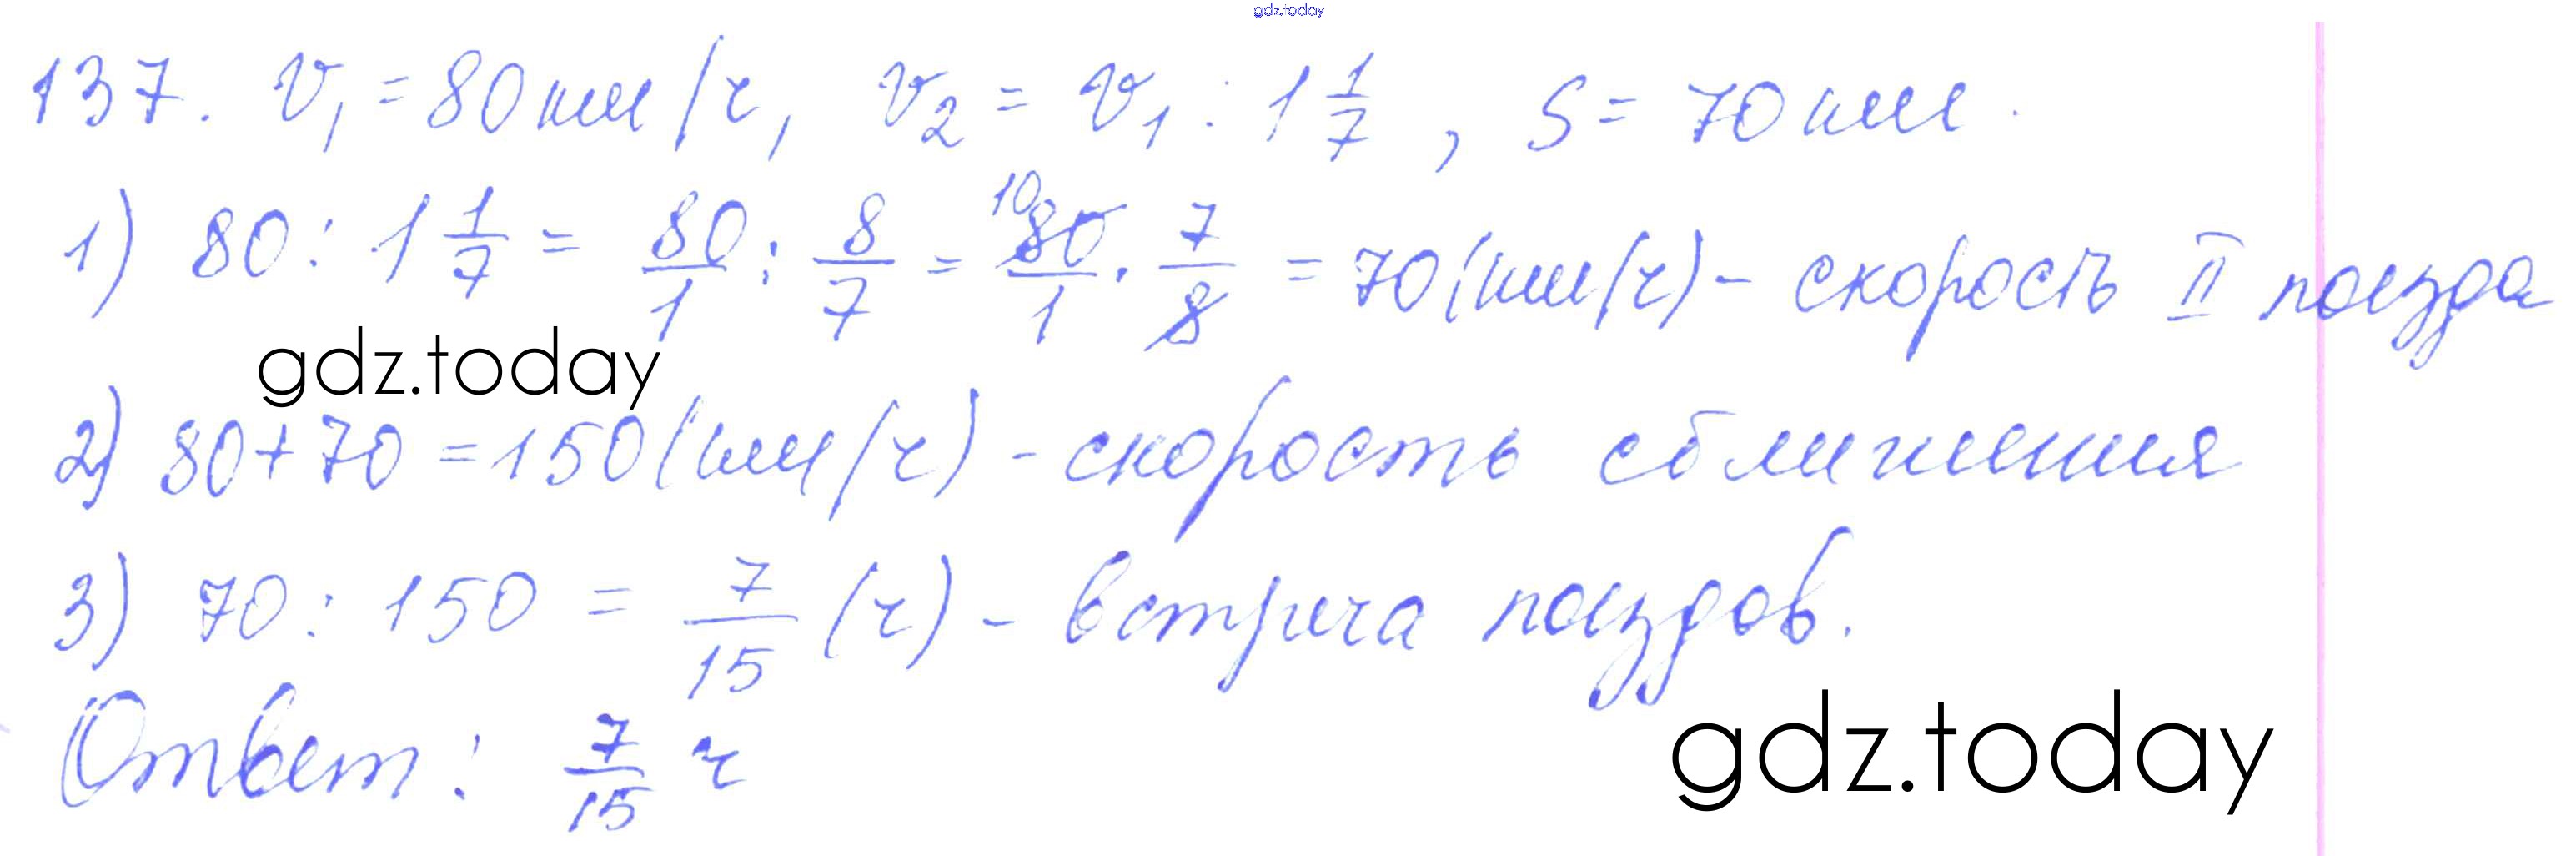 gdz.today
137. v₁ = 80 км/ч, v₂ = v₁ : 1 1/7, S = 70 км.
1) 80 : 1 1/7 = 80/1 : 8/7 = 10 80/1 · 7/8 = 70 (км/ч) - скорость II поезда
gdz.today
2) 80 + 70 = 150 (км/ч) - скорость сближения
3) 70 : 150 = 7/15 (ч) - встреча поездов.
Ответ: 7/15 ч
gdz.today